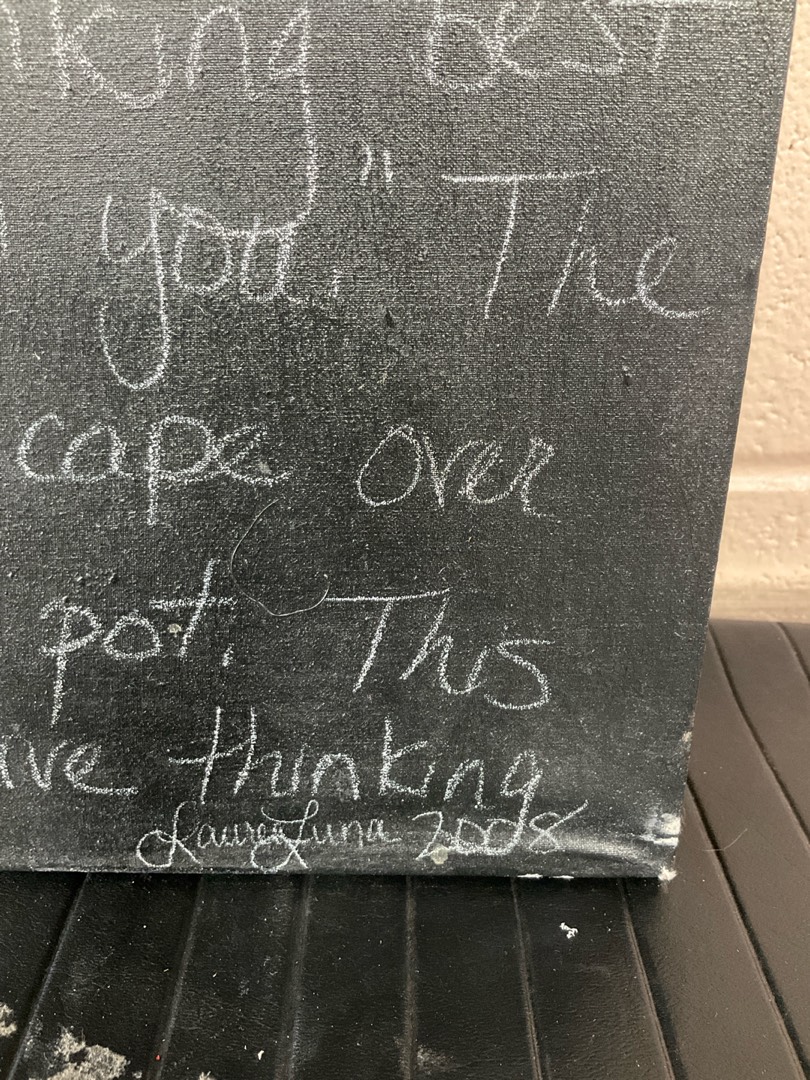 king best
you." The
cape over
pot. This
ive thinking
Lauren Luna 2008